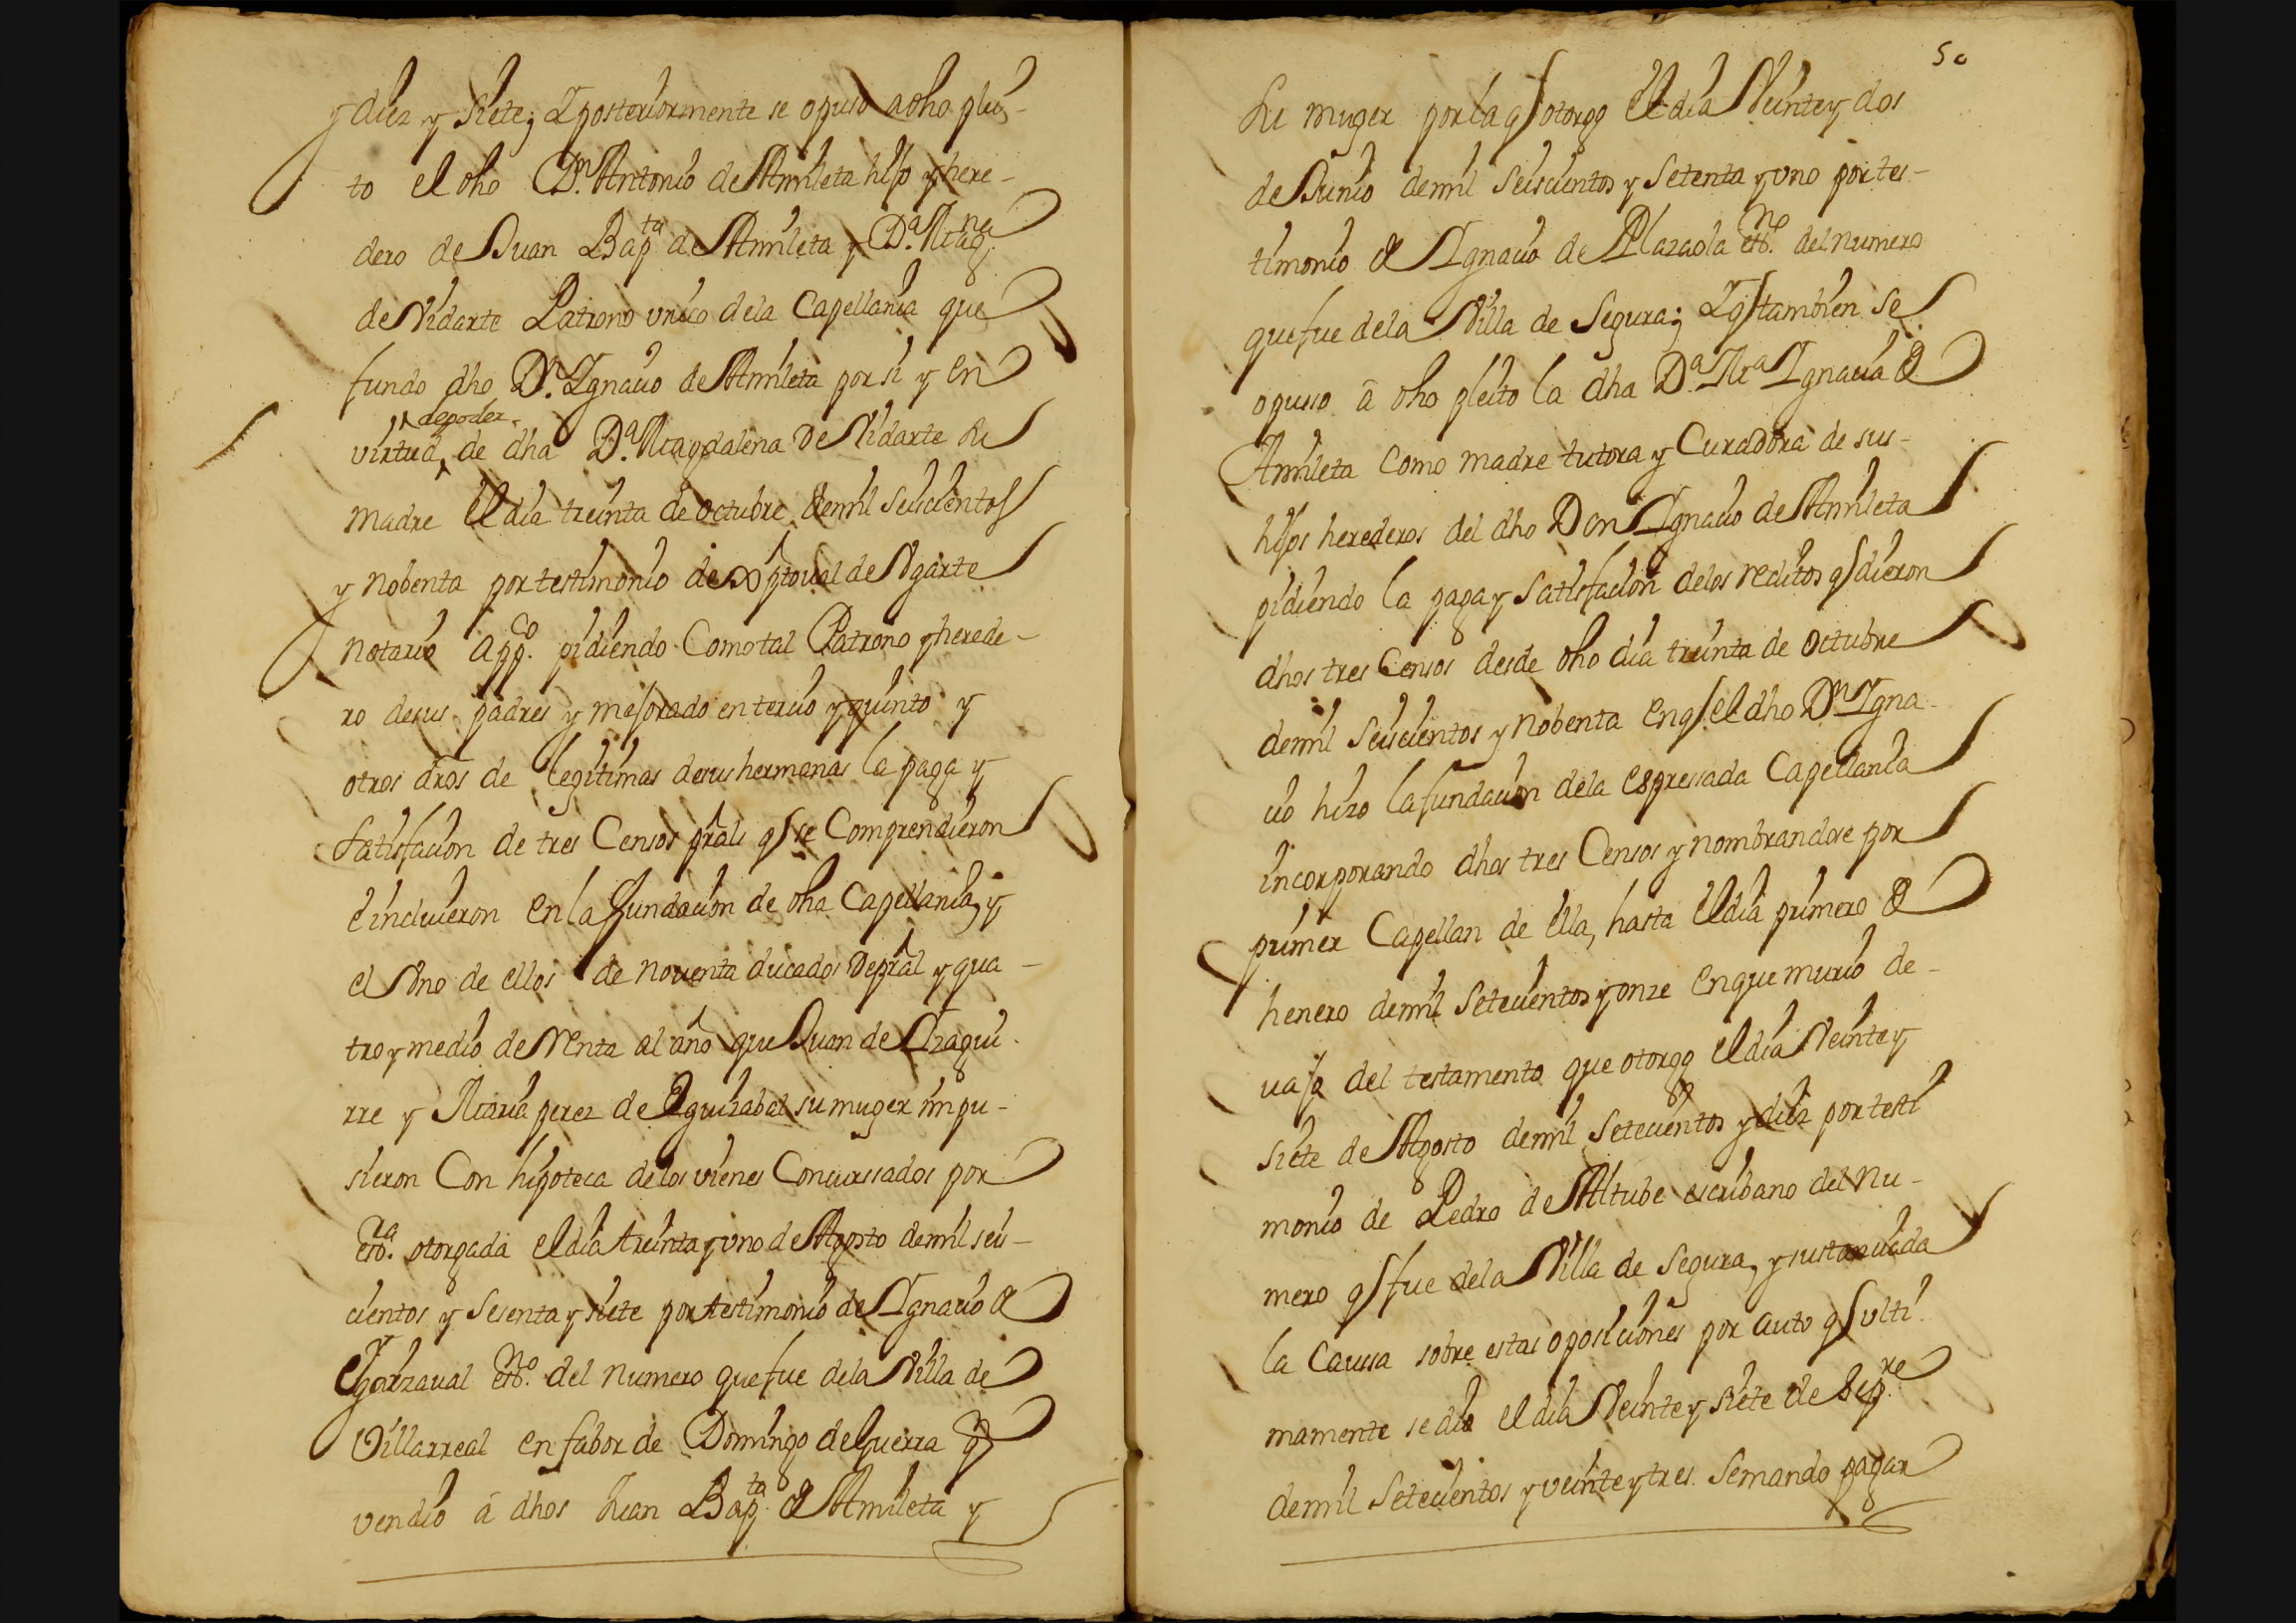 y diez y siete; Y posteriormente se opuso a dho pley-
to el dho Dn. Antonio de Amileta hijo y here-
dero de Juan Bapta de Amileta y Da. Magna
de Vidarte Patrono unico de la Capellania que
fundo dho Dn. Ygnacio de Amileta por si y en
virtud de poder de dha Da. Magdalena de Vidarte su
madre el dia treinta de octubre de mil seiscientos
y nobenta por testimonio de Xptoval de Ugarte
notario appco. pidiendo como tal Patrono y herede-
ro de sus padres y mejorado en tercio y quinto y
otros dros de legitimas de sus hermanas la paga y
satisfacion de tres Censos prals q se comprendieron
e incluieron en la fundacion de dha Capellania, y
el uno de ellos de noventa ducados de pral y qua-
tro y medio de renta al año que Juan de Yzagui-
rre y Maria perez de Eguizabal su muger impu-
sieron con hipoteca de los vienes concurssados por
essra. otorgada el dia treinta y uno de Agosto de mil seis-
cientos y sesenta y siete por testimonio de Ygnacio de
Ygorzaval essno. del numero que fue de la Villa de
Villarreal en fabor de Domingo de Guerra q
vendio â dhos Juan Bapta de Amileta y
50
su muger por la q otorgo el dia veinte y dos
de Junio de mil seiscientos y setenta y uno por tes-
timonio de Ygnacio de Plazaola essno. del numero
que fue de la Villa de Segura; Y q tambien se
opusso â dho pleito la dha Da. Ma Ygnacia de
Amileta como madre tutora y Curadora de sus
hijos herederos del dho Don Ygnacio de Amileta
pidiendo la paga y satisfacion de los reditos q dieron
dhos tres Censos desde dho dia treinta de octubre
de mil seiscientos y nobenta en q el dho Dn Ygna-
cio hizo la fundacion de la espressada Capellania
incorporando dhos tres Censos y nombrandose por
primer Capellan de ella, hasta el dia primero de
henero de mil setecientos y onze en que murio de-
vajo del testamento que otorgo el dia veinte y
siete de Agosto de mil setecientos y diez por testi
monio de Pedro de Altube escribano del nu-
mero q fue de la Villa de Segura, y sustanciada
la caussa sobre estas oposiciones por auto q ulti-
mamente se dio el dia veinte y siete de Sepre
de mil setecientos y veinte y tres. se mando pagar